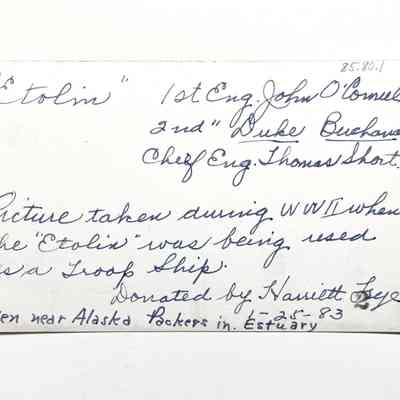 85.80.1
Etolin" 1st Eng. John O'Connel
2nd " Duke Buchana
Chef Eng. Thomas Short.
Picture taken during WWII when
he "Etolin" was being used
as a Troop Ship.
Donated by Harriett
en near Alaska Packers in Estuary
1-25-83